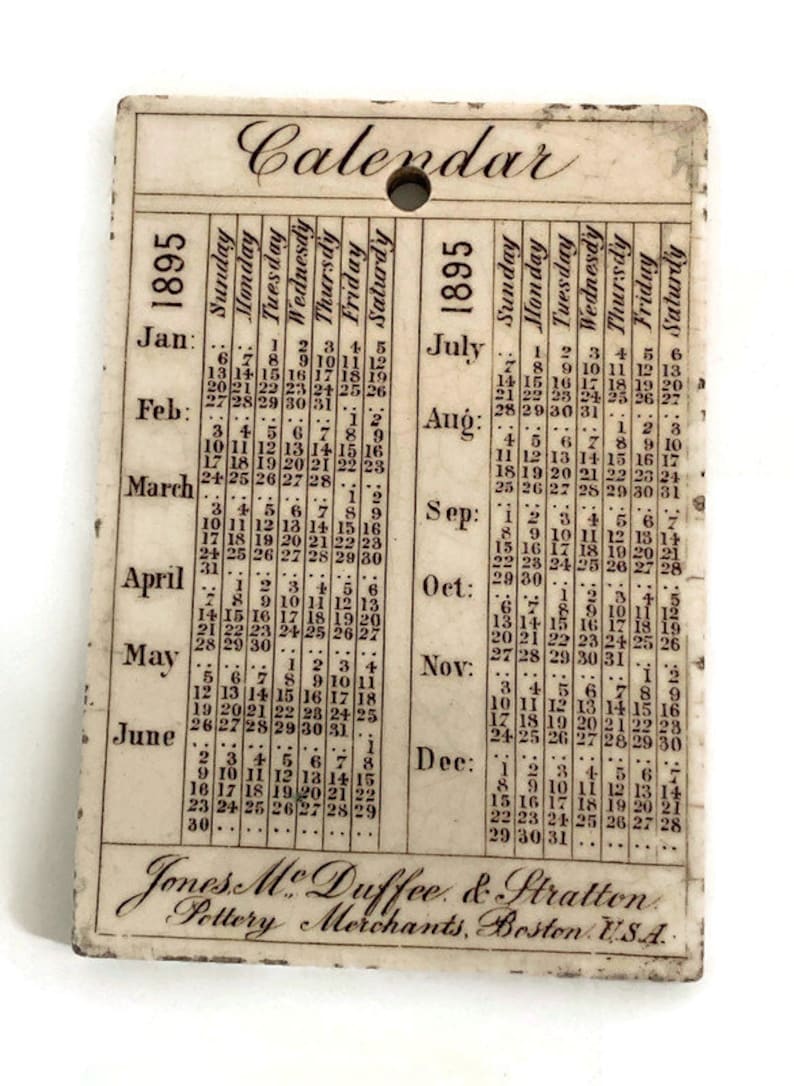 Calendar
1895 Sunday Monday Tuesday Wednesdy Thursdy Friday Saturdy
Jan: .. .. 1 2 3 4 5
6 7 8 9 10 11 12
13 14 15 16 17 18 19
20 21 22 23 24 25 26
27 28 29 30 31 .. ..
Feb: .. .. .. .. .. 1 2
3 4 5 6 7 8 9
10 11 12 13 14 15 16
17 18 19 20 21 22 23
24 25 26 27 28 .. ..
March .. .. .. .. .. 1 2
3 4 5 6 7 8 9
10 11 12 13 14 15 16
17 18 19 20 21 22 23
24 25 26 27 28 29 30
31 .. .. .. .. .. ..
April .. 1 2 3 4 5 6
7 8 9 10 11 12 13
14 15 16 17 18 19 20
21 22 23 24 25 26 27
28 29 30 .. .. .. ..
May .. .. .. 1 2 3 4
5 6 7 8 9 10 11
12 13 14 15 16 17 18
19 20 21 22 23 24 25
26 27 28 29 30 31 ..
June .. .. .. .. .. .. 1
2 3 4 5 6 7 8
9 10 11 12 13 14 15
16 17 18 19 20 21 22
23 24 25 26 27 28 29
30 .. .. .. .. .. ..
1895 Sunday Monday Tuesday Wednesdy Thursdy Friday Saturdy
July .. 1 2 3 4 5 6
7 8 9 10 11 12 13
14 15 16 17 18 19 20
21 22 23 24 25 26 27
28 29 30 31 .. .. ..
Aug: .. .. .. .. 1 2 3
4 5 6 7 8 9 10
11 12 13 14 15 16 17
18 19 20 21 22 23 24
25 26 27 28 29 30 31
Sep: 1 2 3 4 5 6 7
8 9 10 11 12 13 14
15 16 17 18 19 20 21
22 23 24 25 26 27 28
29 30 .. .. .. .. ..
Oct: .. .. 1 2 3 4 5
6 7 8 9 10 11 12
13 14 15 16 17 18 19
20 21 22 23 24 25 26
27 28 29 30 31 .. ..
Nov: .. .. .. .. .. 1 2
3 4 5 6 7 8 9
10 11 12 13 14 15 16
17 18 19 20 21 22 23
24 25 26 27 28 29 30
Dec: 1 2 3 4 5 6 7
8 9 10 11 12 13 14
15 16 17 18 19 20 21
22 23 24 25 26 27 28
29 30 31 .. .. .. ..
Jones, Mc Duffee. & Stratton.
Pottery Merchants, Boston. U.S.A.